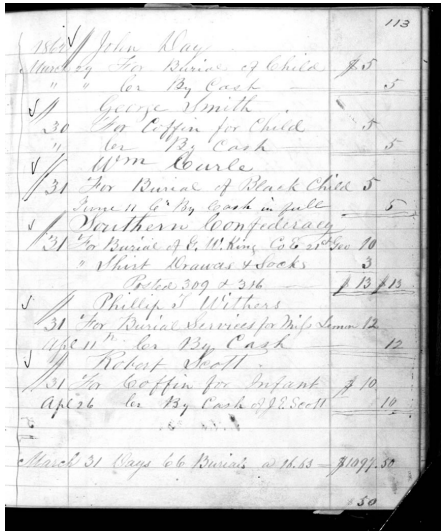 113
1862 John Day
March 29 For Burial of Child $5
" " Cr By Cash 5
George Smith
30 For Coffin for Child 5
" Cr By Cash 5
Wm Curle
31 For Burial of Black Child 5
June 11 Cr By Cash in full 5
Southern Confederacy
31 For Burial of G. W. King Co E 21st Geo 10
" Shirt Drawas & Socks 3
Posted 309 & 316 $13 $13
Phillip T Withers
31 For Burial Services for Miss 12
Apl 11th Cr By Cash 12
Robert Scott
31 For Coffin for Infant $10
Apl 26 Cr By Cash of J E Scott 10
March 31 Days 66 Burials a 16.63 = $1097.50
50